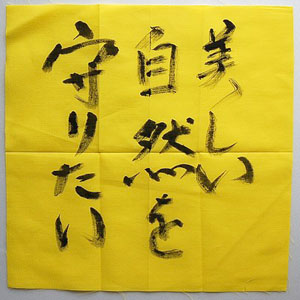 美しい
自然を
守りたい